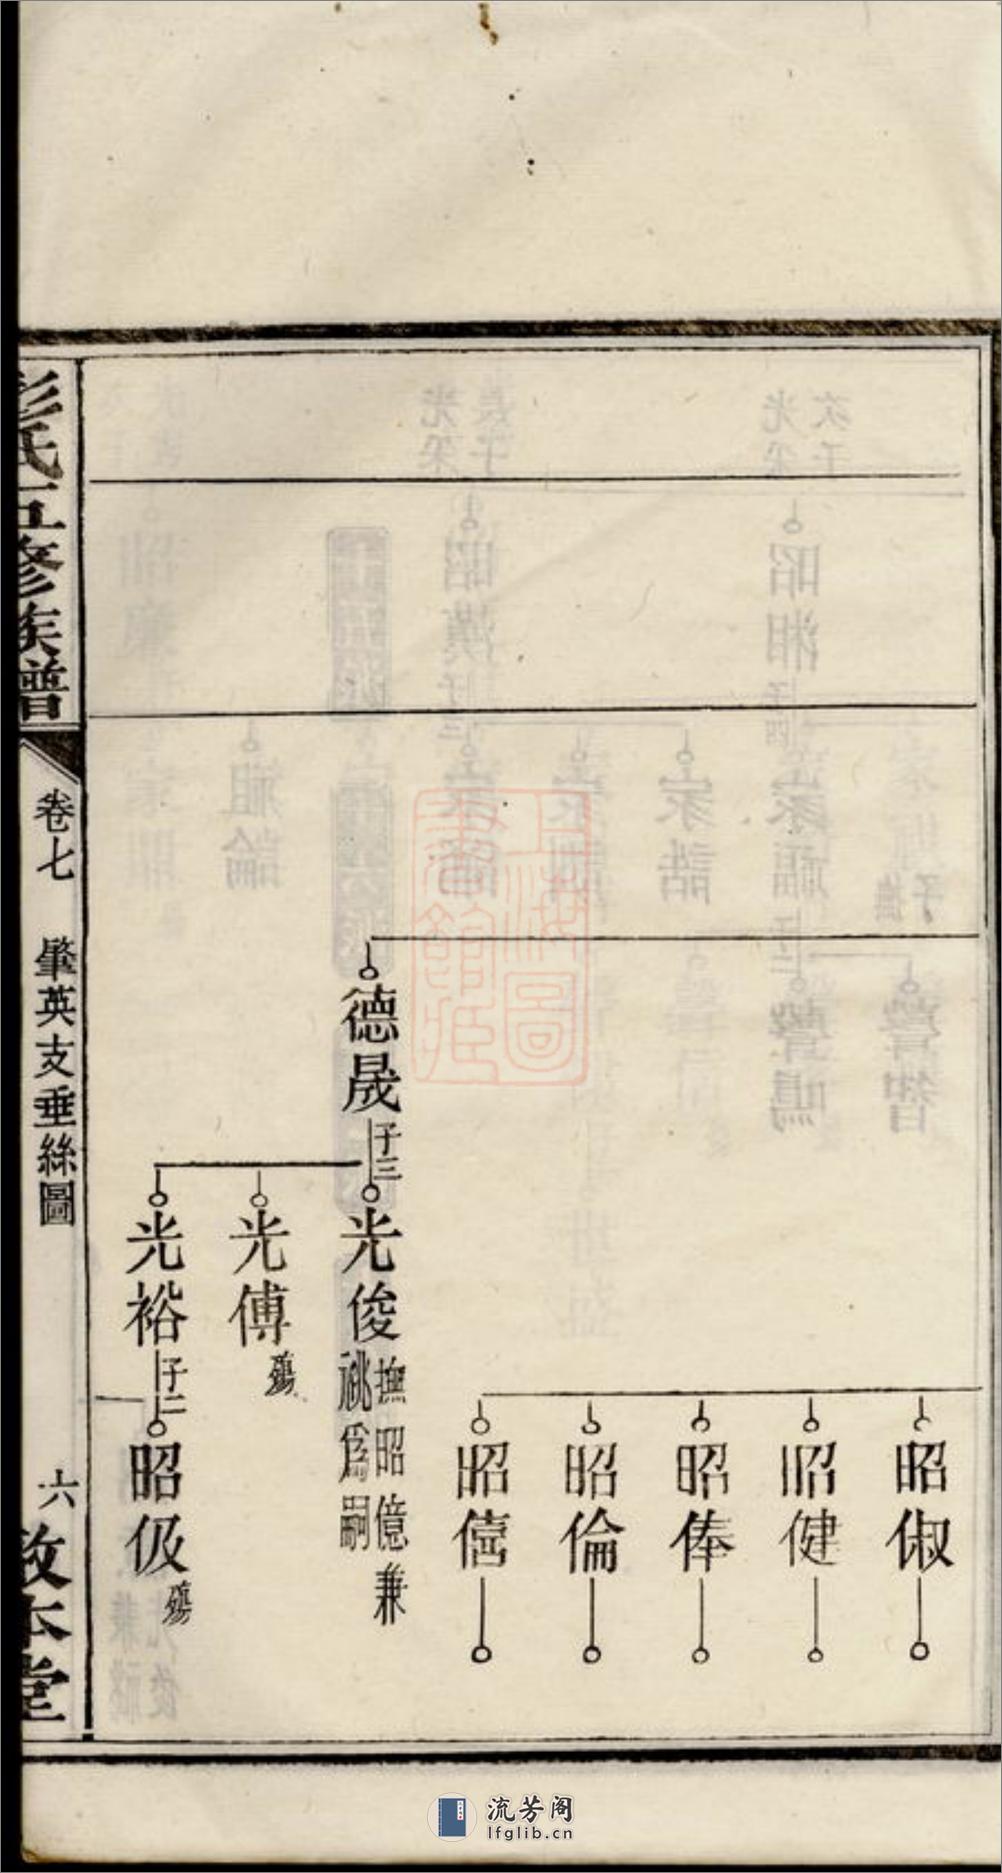 昭俶
昭健
昭俸
昭倫
昭僖
德晟
子三
光俊
撫昭億兼
祧爲嗣
光傅
殤
光裕
子二
昭伋
殤
彭氏五修族譜
卷七
肇英支垂絲圖
六
敦本堂
上海圖書館藏
流芳阁
lfglib.cn